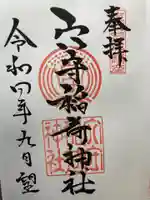 奉拝
穴守稲荷神社
令和四年九月望